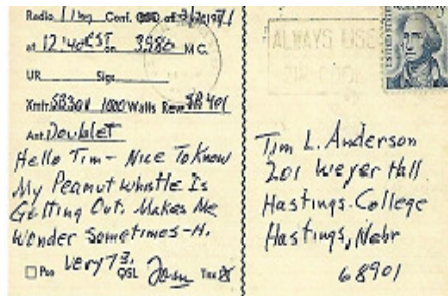 Radio Conf. QSO of
at 12:40 EST on 3980 M.C.
UR Sigs
Xmtr. SB301 1000 Watts Recvr. SB401
Ant. Doublet
Hello Tim - Nice To Know
My Peanut whistle Is
Getting Out. Makes Me
Wonder Sometimes - H.
Pse Very 73, QSL Tnx
ALWAYS USE
ZIP CODE
Tim L. Anderson
201 Weyer Hall
Hastings College
Hastings, Nebr
68901